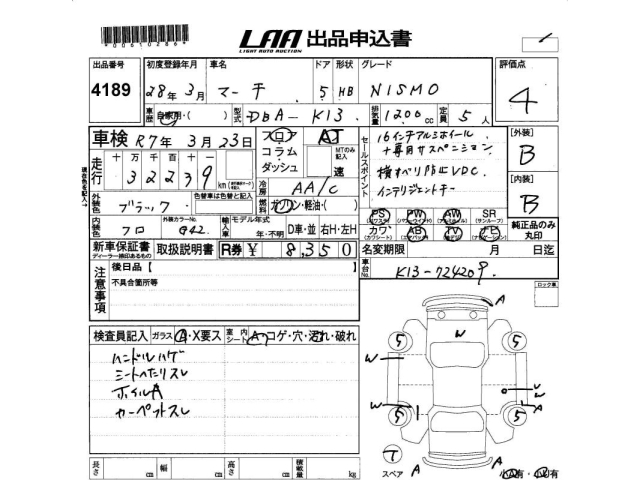 LAA 出品申込書
LIGHT AUTO AUCTION
出品番号 4189
初度登録年月 28年 3月
車名 マーチ
ドア 5
形状 HB
グレード NISMO
評価点 4
車歴 自家用・( )
型式 DBA-K13
排気量 1200cc
定員 5人
車検 R7年 3月 23日
フロア
コラム
ダッシュ
AT
MTのみ記入
速
セールスポイント
16インチアルミホイール
+専用サスペンション
横すべり防止VDC
インテリジェントキー
[外装] B
[内装] B
走行 十万千百十 32239 km
冷房 AA/C
外装色 ブラック
色替車は色替と記入
燃料 ガソリン・軽油・( )
内装色 クロ
外装カラーNo. G42
輸入車
モデル年式 年・不明
D車・並 右H・左H
PS PW AW SR
(サンルーフ)
カワ AB TV ナビ
純正品のみ丸印
新車保証書 取扱説明書
ディーラー捺印あるもの
R券 ¥ 8,350
名変期限 月 日迄
車台No. K13-724209
ロック車
注意事項
後日品【
不具合箇所等
検査員記入 ガラス A・X要ス 室内シート A・コゲ・穴・汚れ・破れ
ハンドルハゲ
シートヘタリスレ
ホイルA
カーペットスレ
長さ cm 幅 cm 高さ cm 積載量 kg
A
5 W 5
W W
W
5 5 A
T
スペア A A